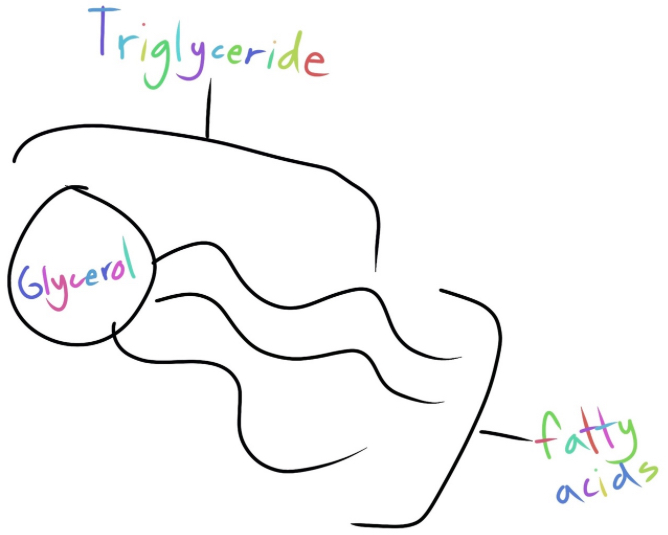 Triglyceride
Glycerol
fatty
acids